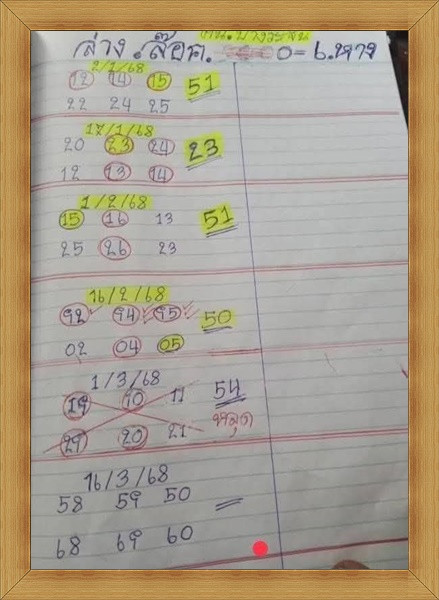 ล่าง ล๊อค. 0 = ๖.หาง
2/1/68
12 14 15 51
22 24 25
17/1/68
20 23 24 23
12 13 14
1/2/68
15 16 13 51
25 26 23
16/2/68
92 94 95 50
02 04 05
1/3/68
19 10 11 54
หลุด
29 20 21
16/3/68
58 59 50
68 69 60